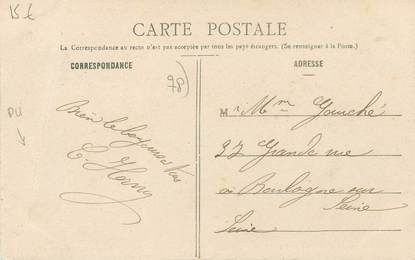 15 €
CARTE POSTALE
La Correspondance au recto n'est pas acceptée par tous les pays étrangers. (Se renseigner à la Poste.)
CORRESPONDANCE
ADRESSE
(78)
Bien
M r Mme Gauché
Grande rue
à Boulogne sur
Seine
Seine